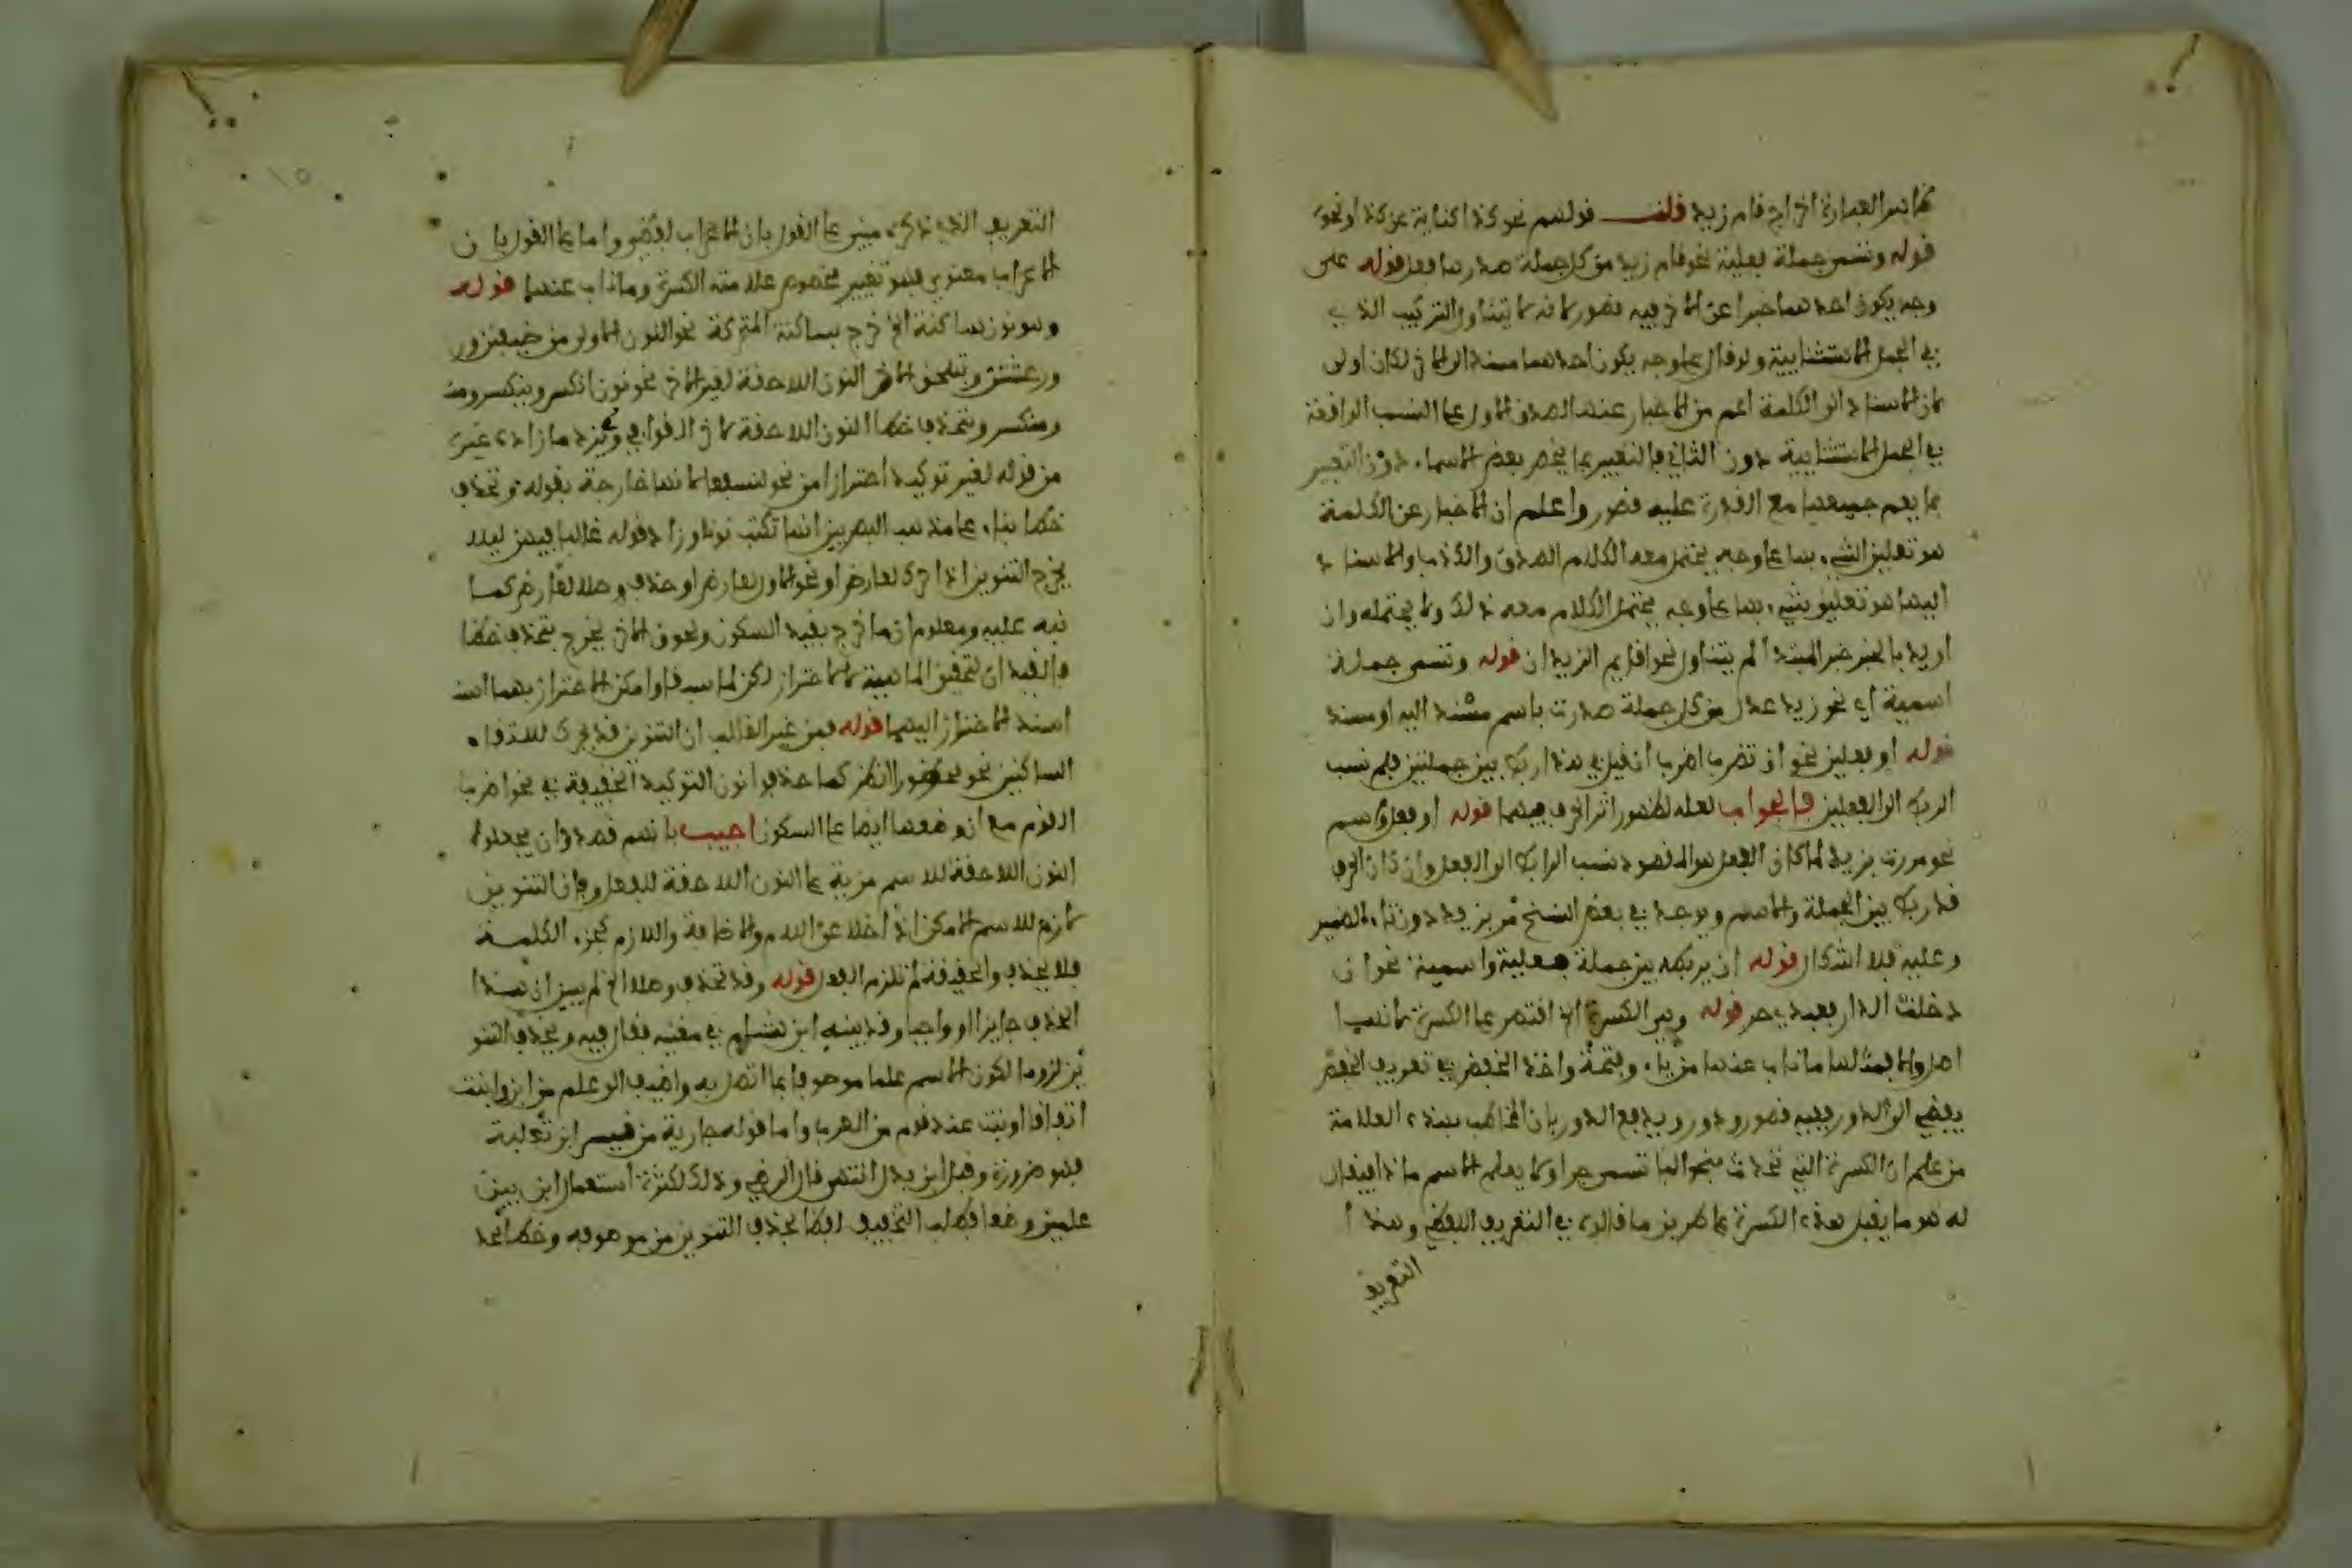 ظاهر العبارة اخراج قام زيد قلت قولهم نحو كذا كناية عن كذا ونحوه
قوله وتسمى جملة فعلية نحو قام زيد من كل جملة صدرها فعل قوله على
وجه يكون احدهما خبرا عن الاخر فيه قصور لانه لا يتناول التركيب الذي
في الجمل الانشائية ولو قال على وجه يكون احدهما مسندا الى الاخر لكان اولى
لان الاسناد الى الكلمة اعم من الاخبار عنها لصدق الاول على النسب الواقعة
في الجمل الانشائية دون الثاني فالتعبير بما يخص بعض الاسماء دون التعبير
بما يعم جميعها مع القدرة عليه قصور واعلم ان الاخبار عن الكلمة
هو تعليق الشيء بها على وجه يحتمل معه الكلام الصدق والكذب والاسناد
اليها هو تعليق شيء بها على وجه يحتمل الكلام معه ذلك ولا يحتمله وان
اريد بالخبر خبر المبتدا لم يتناول نحو اقايم الزيدان قوله وتسمى جملة
اسمية اي نحو زيد عدل من كل جملة صدرت باسم مسند اليه او مسند
قوله او فعلين نحو ان تضرب اضرب ان قيل في هذا ربط بين جملتين فلم نسب
الربط الى الفعلين فالجواب لعله لظهور اثر الحرف فيهما قوله او فعل واسم
نحو مررت بزيد لما كان الفعل هو المقصود نسب الرابط الى الفعل وان كان الحرف
قد ربط بين الجملة والاسم ويوجد في بعض النسخ مر بزيد دون تاء الضمير
وعليه فلا اشكال قوله ان يربط بين جملة فعلية واسمية نحو ان
دخلت الدار فعبدي حر قوله وهي الكسرة الخ اقتصر على الكسرة لانها
اصل والا فمثلها ما ناب عنها من ياء وفتحة واخذ الخفض في تعريف الخفض
يفضي الى الدور ففيه قصور ودور ويدفع الدور بان المخاطب بهذه العلامة
من علم ان الكسرة التي تحدث بنحو الباء تسمى جرا ولا يعلم الاسم ما ذا فيقال
له هو ما يقبل هذه الكسرة على طريق ما قالوه في التعريف اللفظي وهذا
التعريف
التعريف الذي ذكره مبني على القول بان الاعراب لفظي واما على القول بان
الاعراب معنوي فهو تغيير مخصوص علامته الكسرة وما ناب عنها قوله
وهو نون ساكنة الخ خرج بساكنة المتحركة نحو النون الاولى من ضيفن و
ورعشن وبتلحق الاخر النون اللاحقة لغير الاخر نحو نون انكسر وينكسر ومن
ومنكسر وبتحذف خطا النون اللاحقة لاخر القوافي ولم يزد ما زاده غيره
من قوله لغير توكيد احترازا من نحو لنسفعا لانها خارجة بقوله وتحذف
خطا بناء على مذهب البصريين انها تكتب نونا وزاد قوله غالبا فيهن ليلا
يخرج التنوين اذا حرك لعارض او نحو الاول لعارض او حذف وصلا لعارض كما
نبه عليه ومعلوم ان ما خرج بقيد السكون ولحوق الاخر يخرج بتحذف خطا
فالقيد ان لتحقيق الماهية لا للاحتراز لكن لما سبقا وامكن الاحتراز بهما
اسند الاحتراز اليهما قوله فمن غير الغالب ان التنوين قد يحرك لالتقاء
الساكنين نحو محظورا انظر كما حذفوا نون التوكيد الخفيفة في نحو اضرب
القوم مع ان وضعها ايضا على السكون اجيب بانهم قصدوا ان يجعلوا
النون اللاحقة للاسم مزية على النون اللاحقة للفعل وبان التنوين
لازم للاسم الامكن اذا خلا عن اللام والاضافة واللازم كجزء الكلمة
فلا يحذف والخفيفة لم تلزم الفعل قوله وقد تحذف وصلا الخ لم يبين ان هذا
الحذف جايزا او واجبا وقد بينه ابن هشام في مغنيه فقال فيه ويحذف التنو
ين لزوما لكون الاسم علما موصوفا بما اتصل به واضيف الى علم من ابن وابنت
اتفاقا او بنت عند قوم من العرب واما قوله جارية من قيس ابن ثعلبة
فهو ضرورة وقيل ابن بدل انتهى قال الرضي وذلك لكثرة استعمال ابن بين
علمين وصفا فطلب التخفيف لفظا بحذف التنوين من موصوفه وخطا بحذ